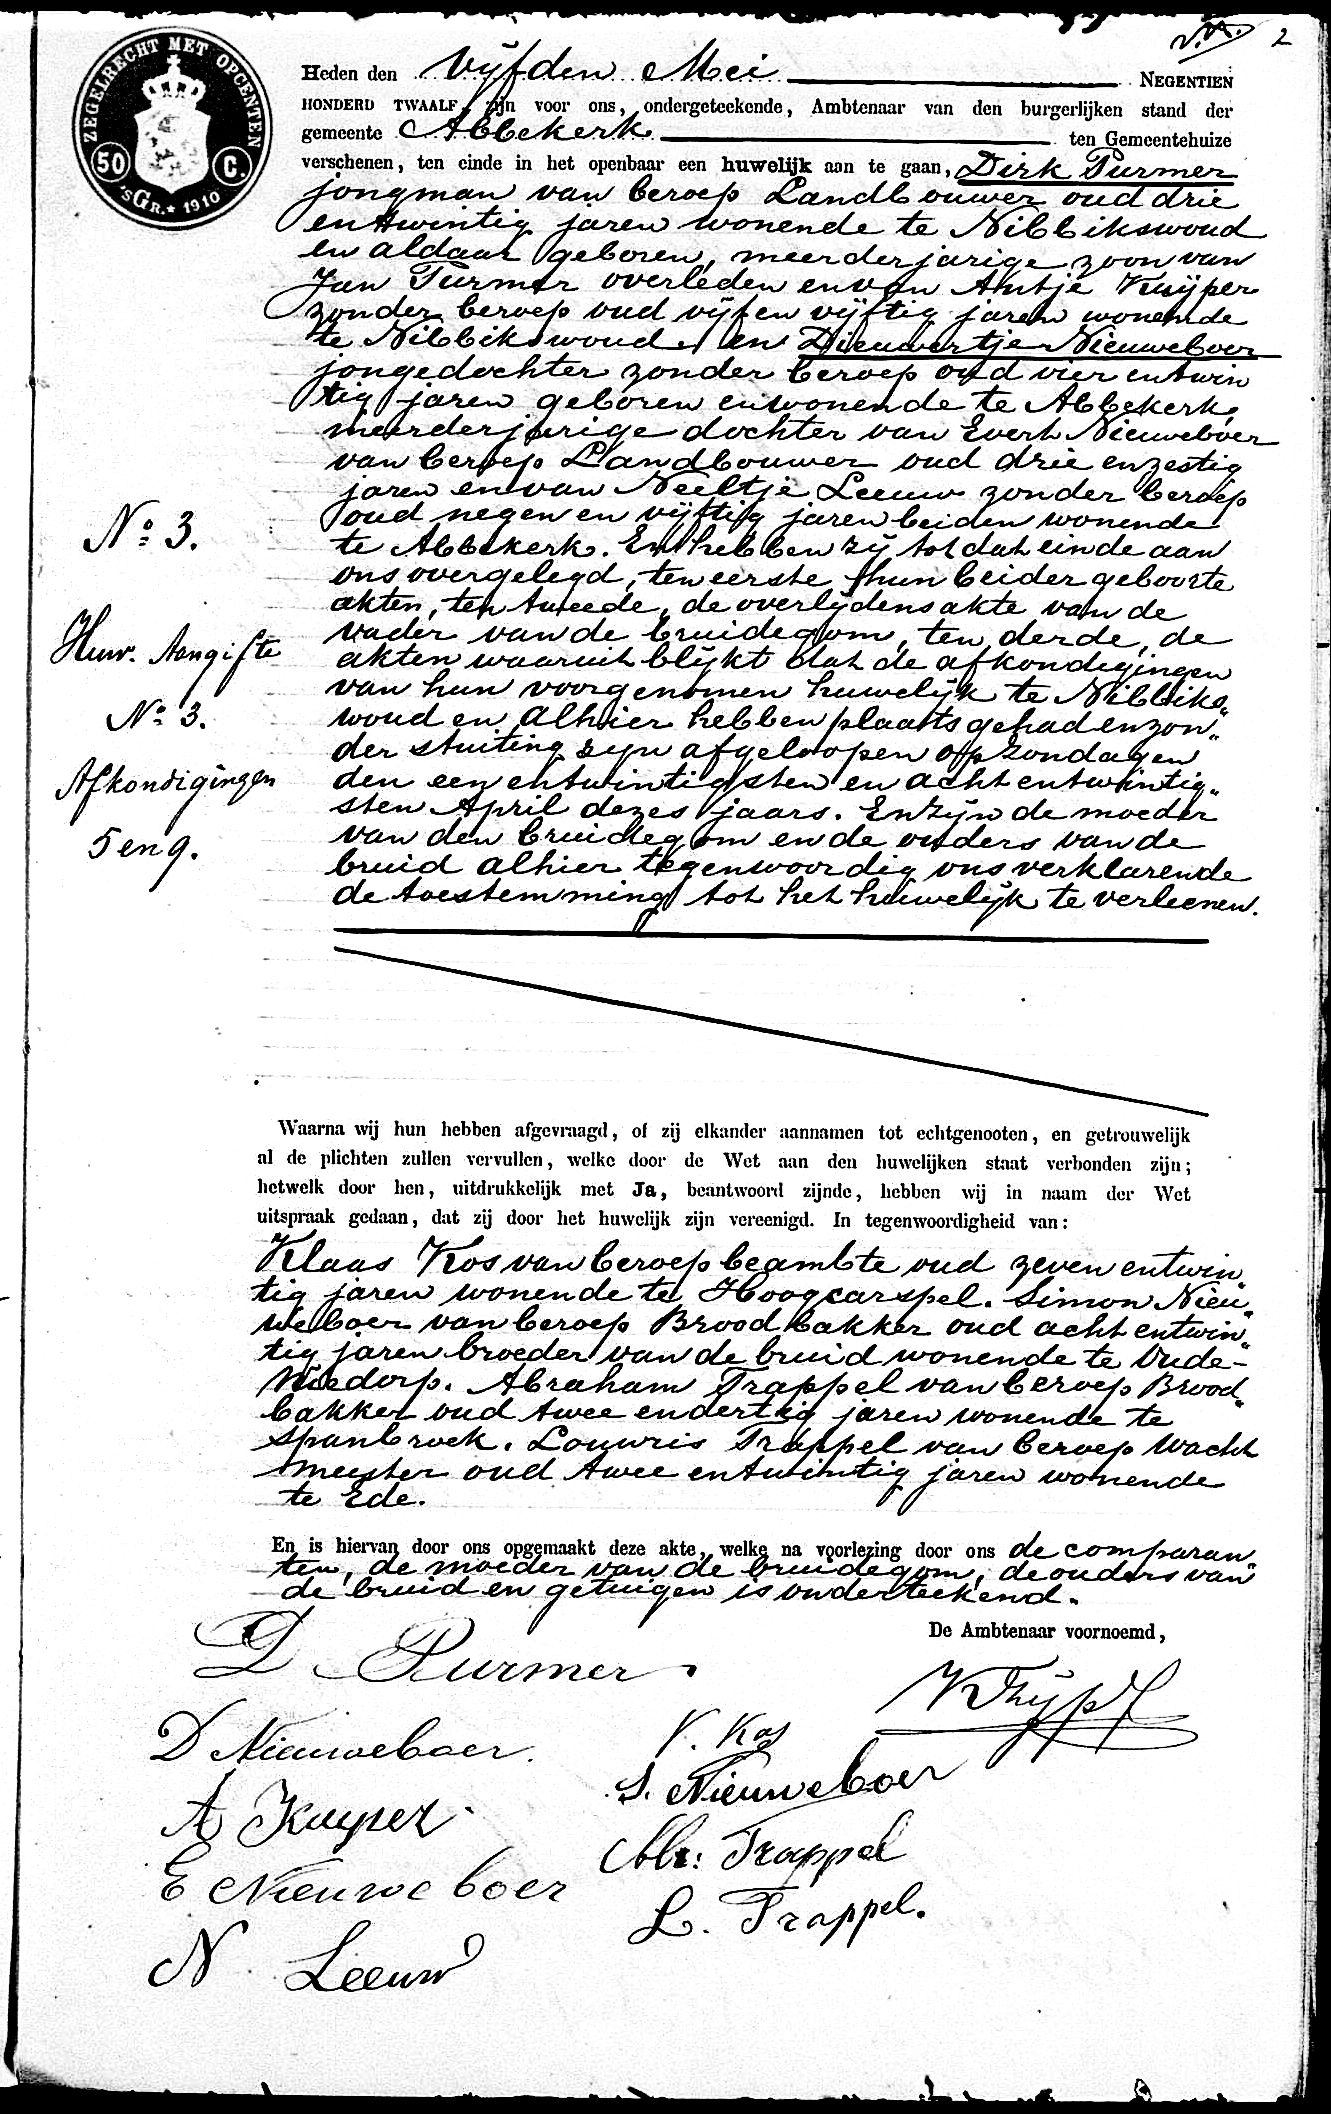 2
ZEGELRECHT MET OPCENTEN
50 C.
'SGR. ★ 1910
Heden den Vijfden Mei NEGENTIEN
HONDERD TWAALF, zijn voor ons, ondergeteekende, Ambtenaar van den burgerlijken stand der
gemeente Abbekerk ten Gemeentehuize
verschenen, ten einde in het openbaar een huwelijk aan te gaan, Dirk Purmer
jongman van beroep Landbouwer oud drie
entwintig jaren wonende te Nibbikswoud
en aldaar geboren, meerderjarige zoon van
Jan Purmer overleden en van Antje Kuijper
zonder beroep oud vijf en vijftig jaren wonende
te Nibbikswoud, en Dieuwertje Nieuweboer
jongedochter zonder beroep oud vier entwin
tig jaren geboren en wonende te Abbekerk,
meerderjarige dochter van Evert Nieuweboer
van beroep Landbouwer oud drie enzestig
jaren en van Neeltje Leeuw zonder beroep
oud negen en vijftig jaren beiden wonende
te Abbekerk. En hebben zij tot dat einde aan
ons overgelegd, ten eerste hun beider geboorte
akten, ten tweede, de overlijdensakte van de
vader van de bruidegom, ten derde, de
akten waaruit blijkt dat de afkondigingen
van hun voorgenomen huwelijk te Nibbiks„
woud en alhier hebben plaats gehad en zon„
der stuiting zijn afgeloopen op Zondagen
den een entwintigsten en acht entwintig„
sten April dezes jaars. En zijn de moeder
van den bruidegom en de ouders van de
bruid alhier tegenwoordig ons verklarende
de toestemming tot het huwelijk te verleenen.
No. 3.
Huw. Aangifte
No. 3.
Afkondigingen
5 en 9.
Waarna wij hun hebben afgevraagd, of zij elkander aannamen tot echtgenooten, en getrouwelijk
al de plichten zullen vervullen, welke door de Wet aan den huwelijken staat verbonden zijn;
hetwelk door hen, uitdrukkelijk met Ja, beantwoord zijnde, hebben wij in naam der Wet
uitspraak gedaan, dat zij door het huwelijk zijn vereenigd. In tegenwoordigheid van:
Klaas Kos van beroep beambte oud zeven entwin„
tig jaren wonende te Hoogcarspel. Simon Nieu„
weboer van beroep Broodbakker oud acht entwin„
tig jaren broeder van de bruid wonende te Oude-
Niedorp. Abraham Trappel van beroep Brood„
bakker oud twee endertig jaren wonende te
Spanbroek. Louwris Trappel van beroep Wacht
meester oud twee entwintig jaren wonende
te Ede.
En is hiervan door ons opgemaakt deze akte, welke na voorlezing door ons de comparan„
ten, de moeder van de bruidegom, de ouders van
de bruid en getuigen is onderteekend.
De Ambtenaar voornoemd,
D. Purmer.
D Nieuweboer.
K. Kos
S. Nieuweboer
A Kuyper
Abr: Trappel
E Nieuweboer
L. Trappel.
N Leeuw